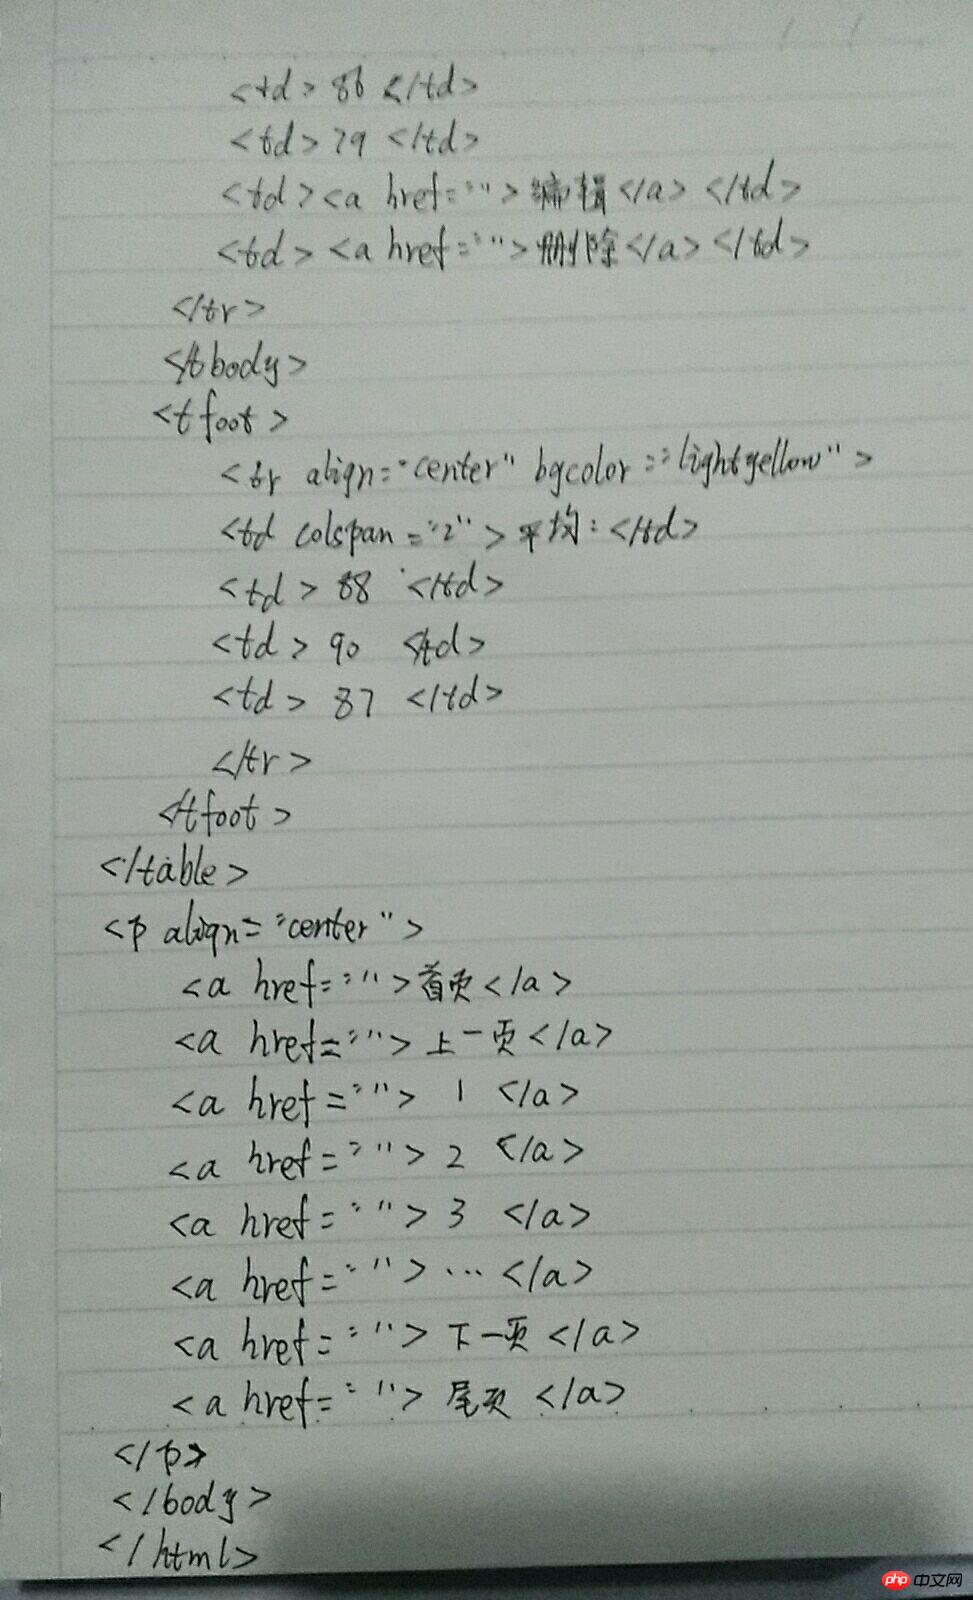 <td> 86 </td>
<td> 79 </td>
<td><a href="">编辑</a> </td>
<td> <a href="">删除</a> </td>
</tr>
</tbody>
<tfoot>
<tr align="center" bgcolor="lightyellow">
<td colspan="2">平均:</td>
<td> 88 </td>
<td> 90 </td>
<td> 87 </td>
</tr>
</tfoot>
</table>
<p align="center">
<a href="">首页</a>
<a href="">上一页</a>
<a href=""> 1 </a>
<a href=""> 2 </a>
<a href=""> 3 </a>
<a href="">...</a>
<a href="">下一页</a>
<a href="">尾页</a>
</p>
</body>
</html>
php 中文网